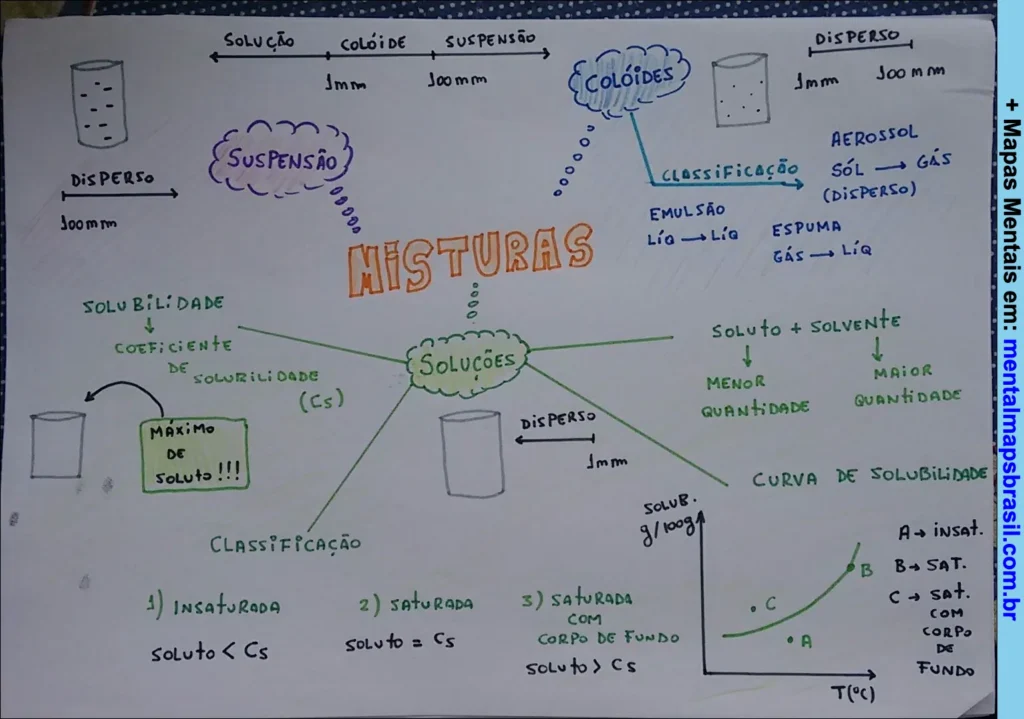 SOLUÇÃO COLÓIDE SUSPENSÃO
1mm 100mm
SUSPENSÃO
DISPERSO
100mm
COLÓIDES
DISPERSO
1mm 100mm
CLASSIFICAÇÃO
AEROSSOL
SÓL → GÁS
(DISPERSO)
EMULSÃO
LÍQ → LÍQ
ESPUMA
GÁS → LÍQ
MISTURAS
SOLUBILIDADE
↓
COEFICIENTE
DE
SOLUBILIDADE
(Cs)
MÁXIMO
DE
SOLUTO!!!
SOLUÇÕES
DISPERSO
1mm
SOLUTO + SOLVENTE
↓ ↓
MENOR
QUANTIDADE
MAIOR
QUANTIDADE
CLASSIFICAÇÃO
1) INSATURADA
SOLUTO < Cs
2) SATURADA
SOLUTO = Cs
3) SATURADA
COM
CORPO DE FUNDO
SOLUTO > Cs
CURVA DE SOLUBILIDADE
SOLUB.
g/100g
B
C
A
T(ºC)
A → INSAT.
B → SAT.
C → SAT.
COM
CORPO
DE
FUNDO
+ Mapas Mentais em: mentalmapsbrasil.com.br